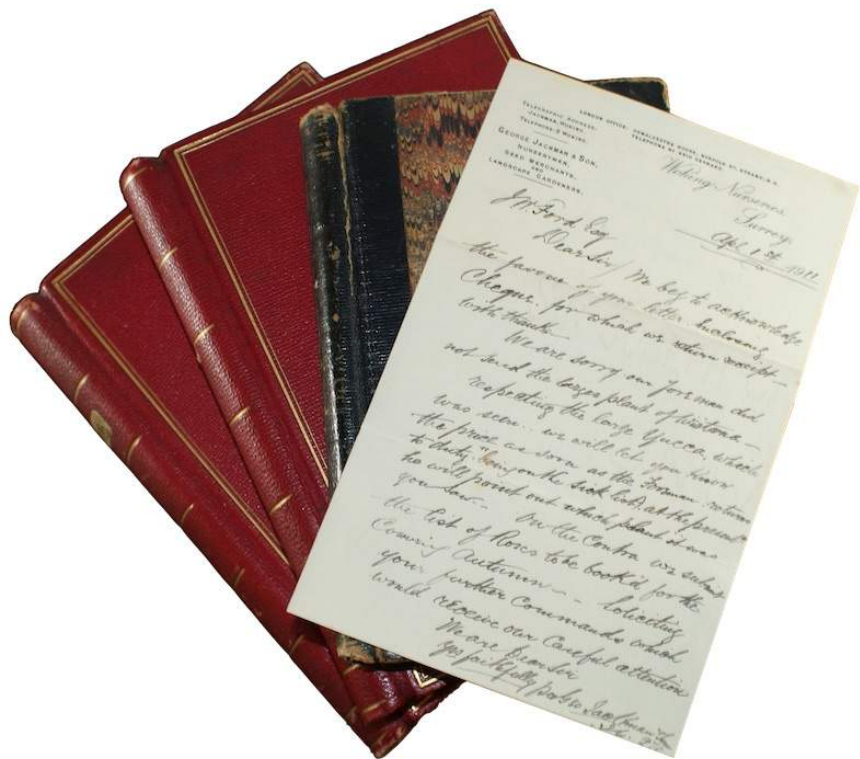 LONDON OFFICE: NORFOLK ST, STRAND, W.C.
TELEGRAPHIC ADDRESS.
JACKMAN, WOKING.
TELEPHONE: WOKING.
GEORGE JACKMAN & SON,
NURSERYMEN,
SEED MERCHANTS,
AND
LANDSCAPE GARDENERS.
Woking Nurseries
Surrey
Apl 1st 1911
J W Ford Esq
Dear Sir / We beg to acknowledge
the favour of your letter enclosing
Cheque for which we return receipt
with thanks
We are sorry our foreman did
not send the larger plant of
respecting the large Yucca, which
was seen.. we will let you know
the price as soon as the Foreman return
to duty. on the sick list at the present
he will point out which plant it was
you saw.. On the Contra we submit
the list of Roses to be book'd for the
Coming Autumn - - Soliciting
your further Commands which
would receive our Careful attention
We are Dear Sir
Yrs faithfully Geo Jackman &